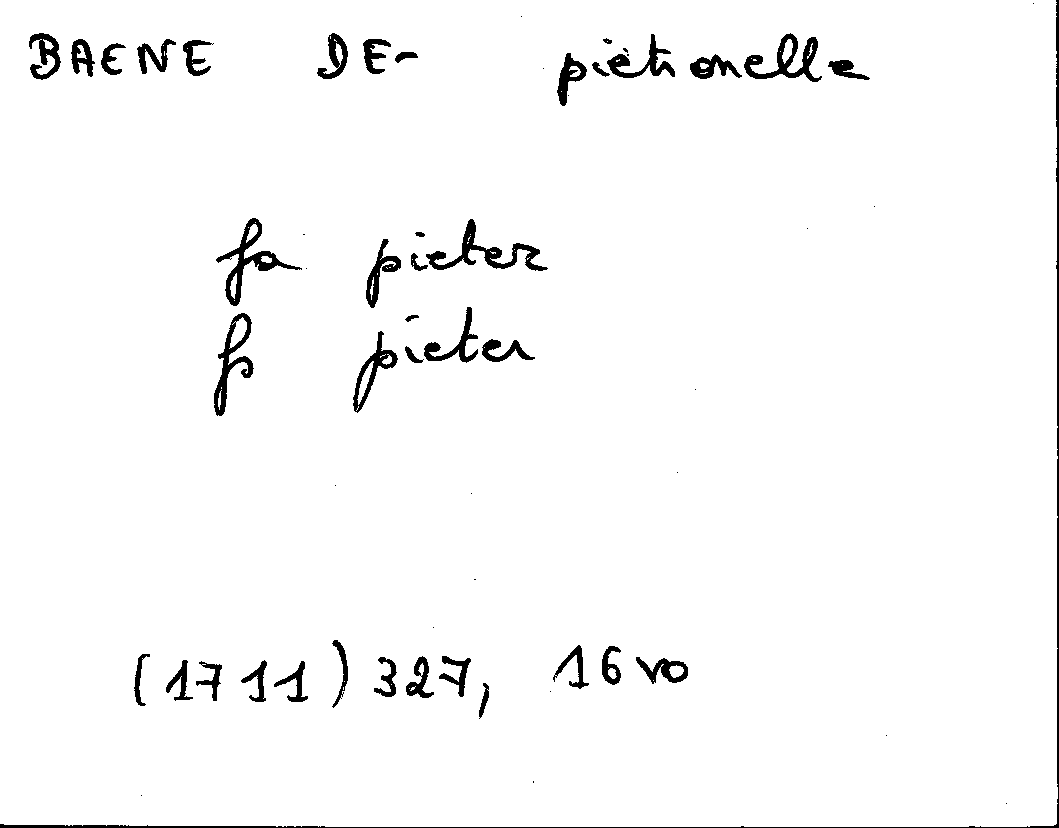 BAENE DE- pietronelle
fa pieter
fs pieter
(1711) 327, 16 vo